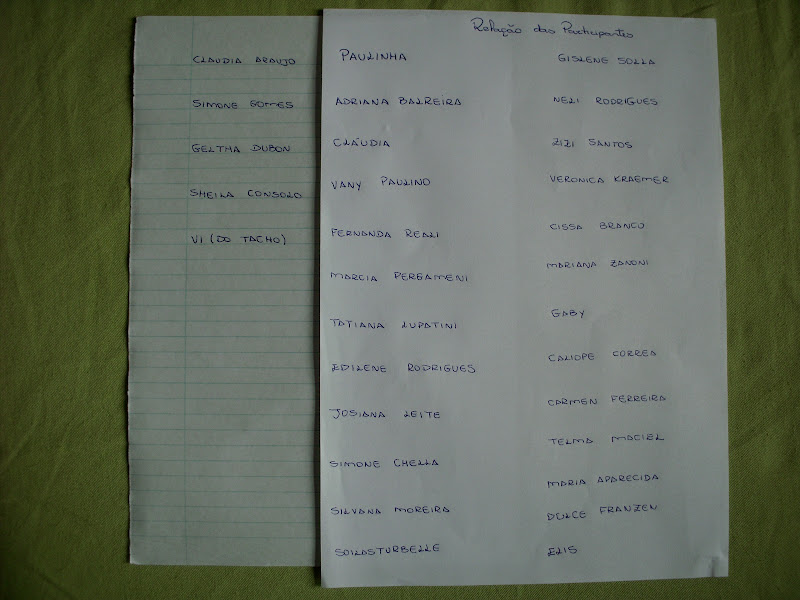 CLAUDIA ARAUJO
SIMONE GOMES
GELTHA DUBON
SHEILA CONSOLO
VI (DO TACHO)
Relação das Participantes
PAULINHA
ADRIANA BALREIRA
CLÁUDIA
VANY PAULINO
FERNANDA REALI
MARCIA PERGAMENI
TATIANA LUPATINI
EDILENE RODRIGUES
JOSIANA LEITE
SIMONE CHELLA
SILVANA MOREIRA
SOILASTURBELLE
GISLENE SOLLA
NELI RODRIGUES
ZIZI SANTOS
VERONICA KRAEMER
CISSA BRANCO
MARIANA ZANONI
GABY
CALIOPE CORREA
CARMEN FERREIRA
TELMA MACIEL
MARIA APARECIDA
DULCE FRANZEN
ELIS